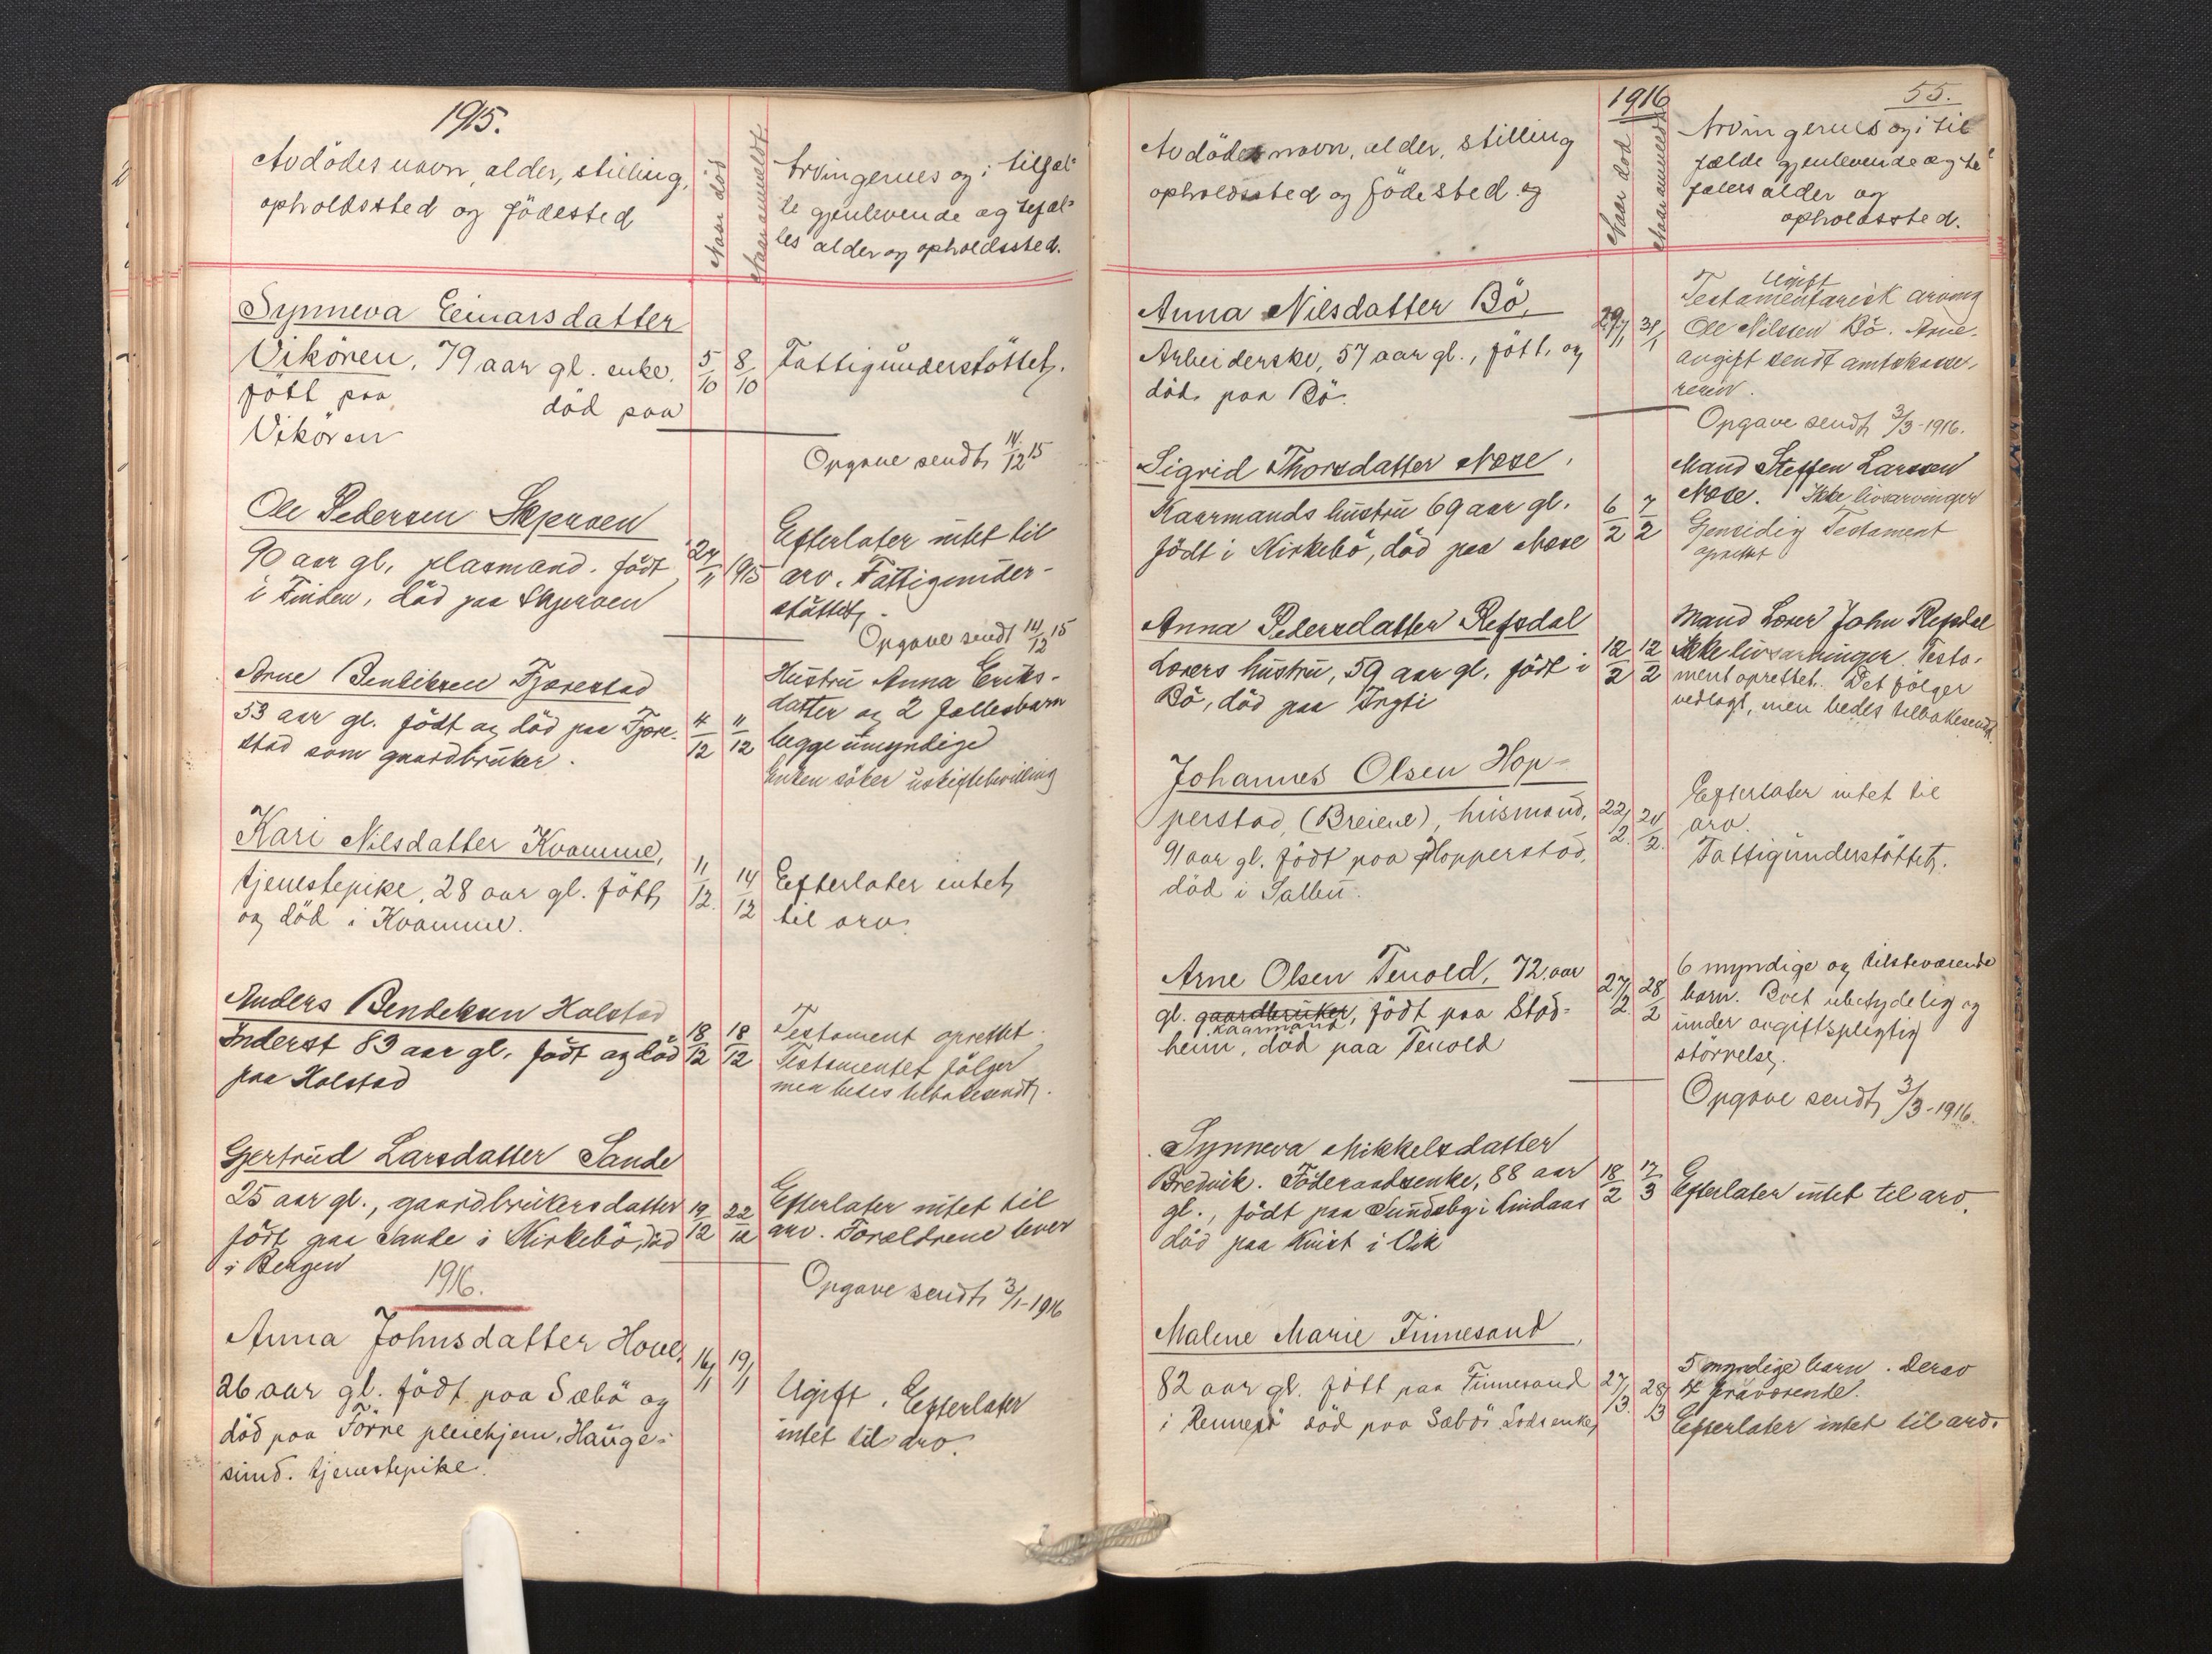 1915.
Avdödes navn, alder, stilling,
opholdssted og födested
Naar död
Naar anmeldt
Arvingernes og i tilfæl-
de gjenlevende ægtefæl-
les alder og opholdssted.
Synneva Einarsdatter
Vikören, 79 aar gl. enke.
födt paa
död paa
Vikören
5/10
8/10
Fattigunderstöttet.
Opgave sendt 14/12 15
Ole Pedersen
90 aar gl, plasmand. födt
i Finden, död paa
24/11
1915
Efterlater intet til
arv. Fattigunder-
stöttet.
Opgave sendt 14/12 15
Arne Bendiksen Tjærestad
53 aar gl. födt og död paa Tjære-
stad som gaardbruker.
4/12
11/12
Hustru Anna Eriks-
datter og 2 fællesbarn
begge umyndige
Enken söker uskiftebevilling
Kari Nilsdatter Kvamme,
tjenestepike, 28 aar gl. födt
og död i Kvamme.
11/12.
14/12
Efterlater intet
til arv.
Anders Bendiksen Halstad
Inderst 83 aar gl. födt og död
paa Halstad
18/12
18/12
Testament oprettet.
Testamentet fölger
men bedes tilbakesendt.
Gjertrud Larsdatter Sande
25 aar gl., gaardbrukersdatter
födt paa Sande i Kirkebö, död
i Bergen
19/12
22/12
Efterlater intet til
arv. Forældrene lever
Opgave sendt 3/1-1916
1916.
Anna Johnsdatter Hove,
26 aar gl. födt paa Sæbö og
död paa Förre pleiehjem, Hauge-
sund. tjenestepike.
16/1
19/1
Ugift. Efterlater
intet til arv.
1916
55.
Avdödes navn, alder, stilling
opholdssted og födested og
Naar död
Naar anmeldt
Arvingernes og i til
fælde gjenlevende ægte-
fælles alder og
opholdssted.
Anna Nilsdatter Bö,
Arbeiderske, 57 aar gl., födt. og
död. paa Bö.
29/1
31/1
Ugift
Testamentarisk arving
Ole Nilsen Bö. Arve-
avgift sendt amtskasse-
reren.
Opgave sendt 3/3-1916.
Sigrid Thorsdatter Nese.
Kaarmands hustru 69 aar gl.
födt i Kirkebö, död paa Nese
6/2
7/2
Mand Steffen Larssen
Nese. Ikke livsarvinger
Gjensidig Testament
oprettet
Anna Pedersdatter Refsdal
Losers hustru, 59 aar gl. födt i
Bö, död paa
12/2
12/2
Mand Loser John Refsdal
ikke livsarvinger. Testa-
ment oprettet. Det fölger
vedlagt, men bedes tilbakesendt.
Johannes Olsen Hop-
perstad, (Breiene), husmand,
91 aar gl. födt paa Hopperstad,
död i Salbu.
22/2.
24/2.
Efterlater intet til
arv.
Fattigunderstöttet.
Arne Olsen Tenold, 72 aar
gl. gaardbruker, födt paa Stad-
kaarmand
heim, död paa Tenold
27/2.
28/2
6 myndige og tilsteværende
barn. Boet ubetydelig og
under avgiftspligtig
störrelse.
Opgave sendt 3/3-1916.
Synneva Mikkelsdatter
Bredvik. Föderaadsenke, 88 aar
gl., födt paa Sundsby i Lindaas
död paa Kvist i Vik
18/2
17/3
Efterlater intet til arv.
Malene Marie Finnesand,
82 aar gl. födt paa Finnesand
i Rennesö död paa Sæbö. Losenke,
27/3.
28/3
5 myndige barn. Derav
4 fraværende.
Efterlater intet til arv.